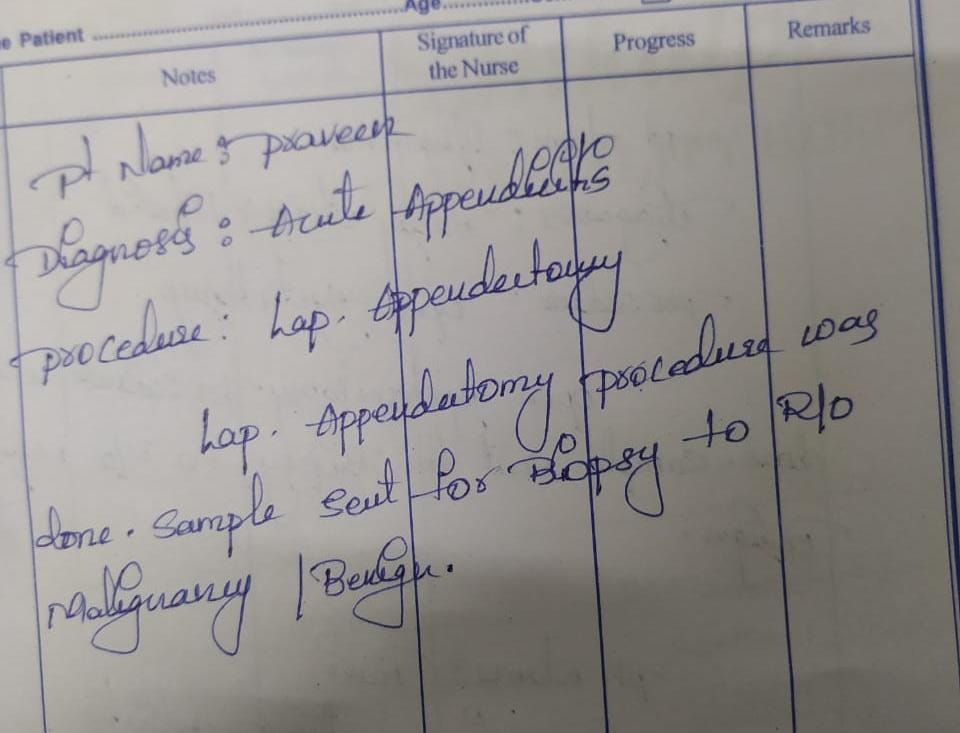 e Patient ........ Age........
Notes
Signature of
the Nurse
Progress
Remarks
Pt Name : Praveen
Diagnosis : Acute Appendicitis
procedure : Lap. Appendectomy
Lap. Appendectomy procedure was
done. Sample sent for Biopsy to R/o
Malignancy / Benign.